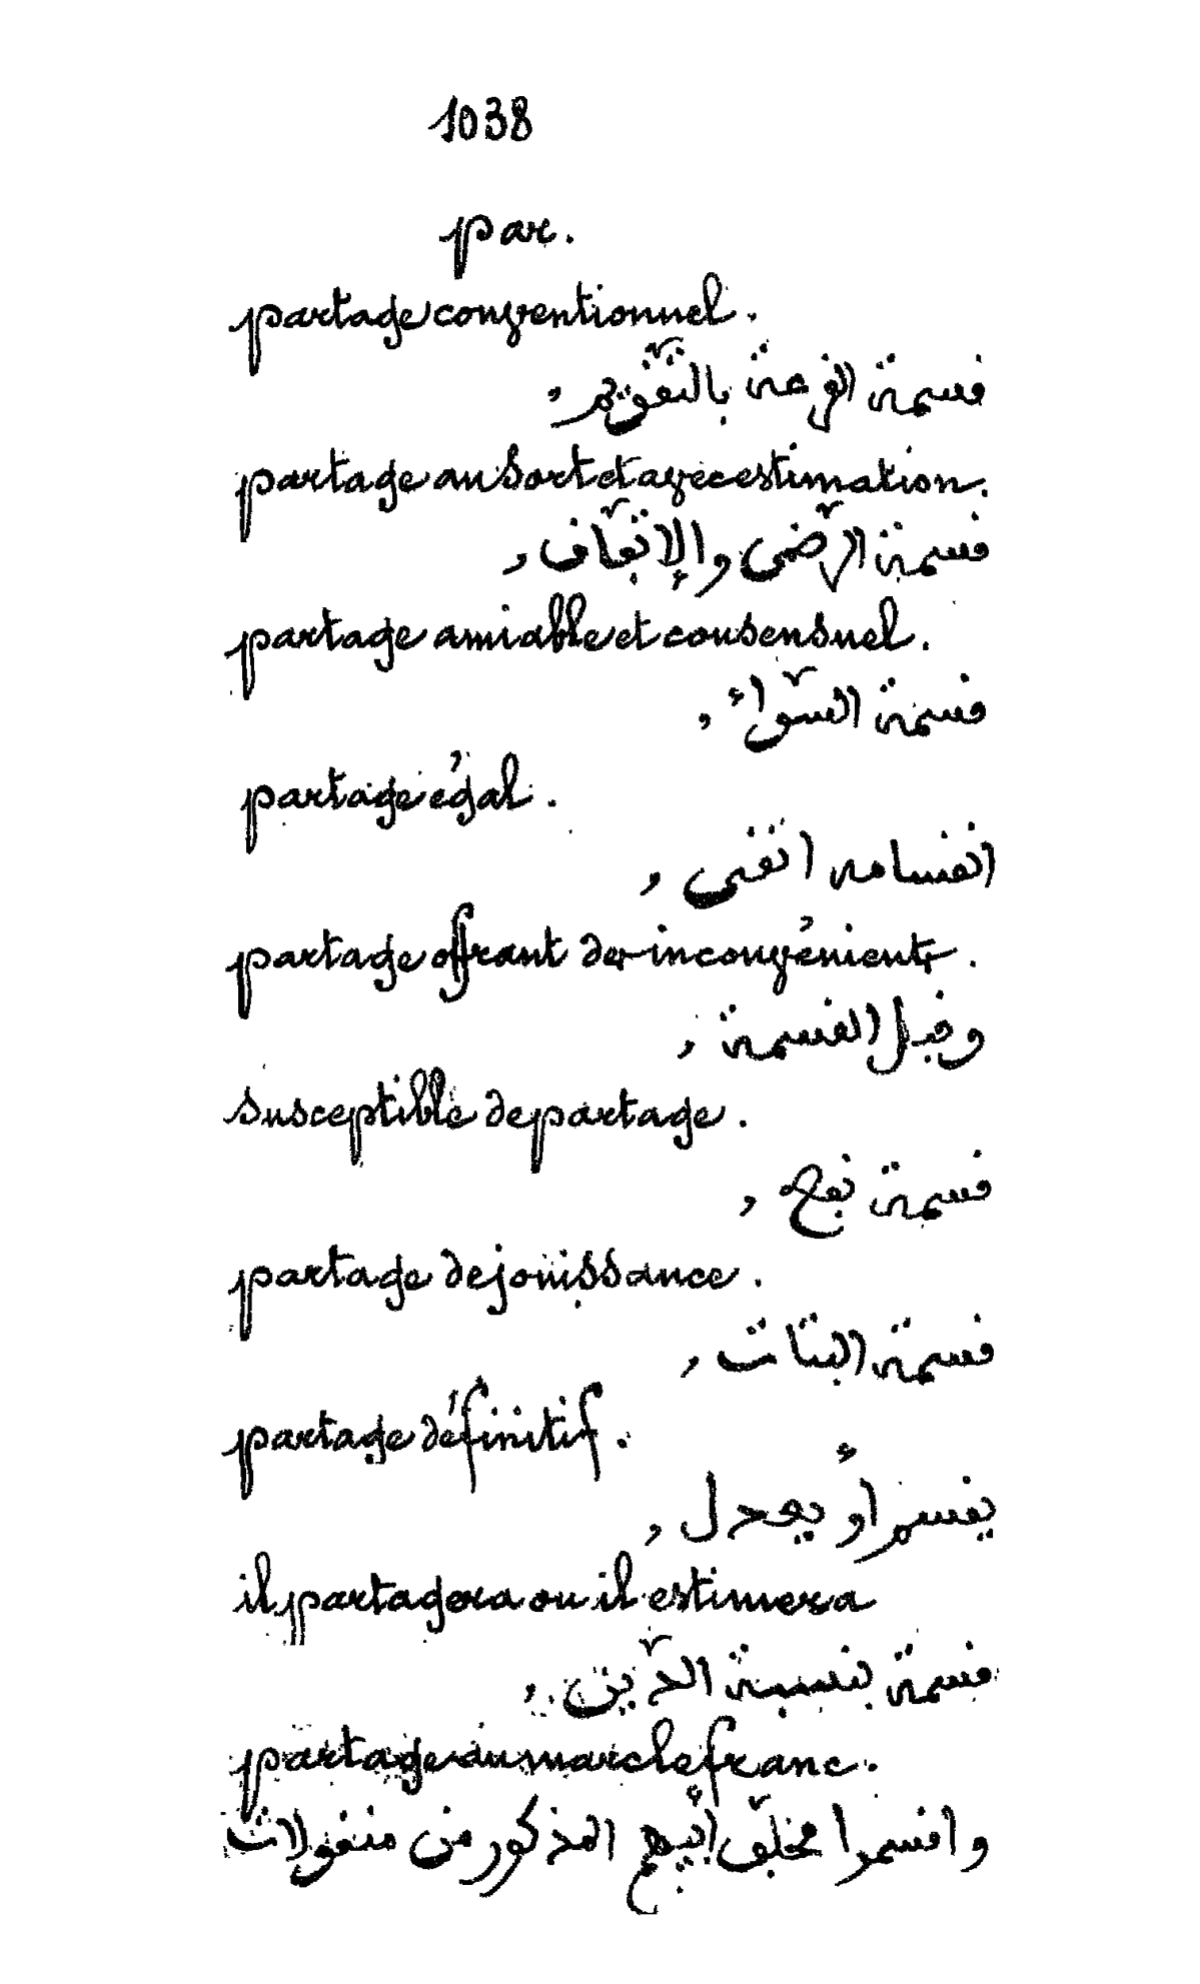 1038
par.
partage conventionnel.
قسمة القرعة بالتّقويم,
partage au sort et avec estimation.
قسمة الرّضى والإتّفاق,
partage amiable et consensuel.
قسمة السّواء,
partage égal.
انقسامه
partage offrant des inconvénients.
وقبل القسمة,
susceptible de partage.
قسمة نفع,
partage de jouissance.
قسمة البتات,
partage définitif.
يقسم أو يعدل,
il partagera ou il estimera
قسمة بنسبة الدّين,
partage au marc le franc.
واقتسموا مخلّف أبيهم المذكور من منقولات